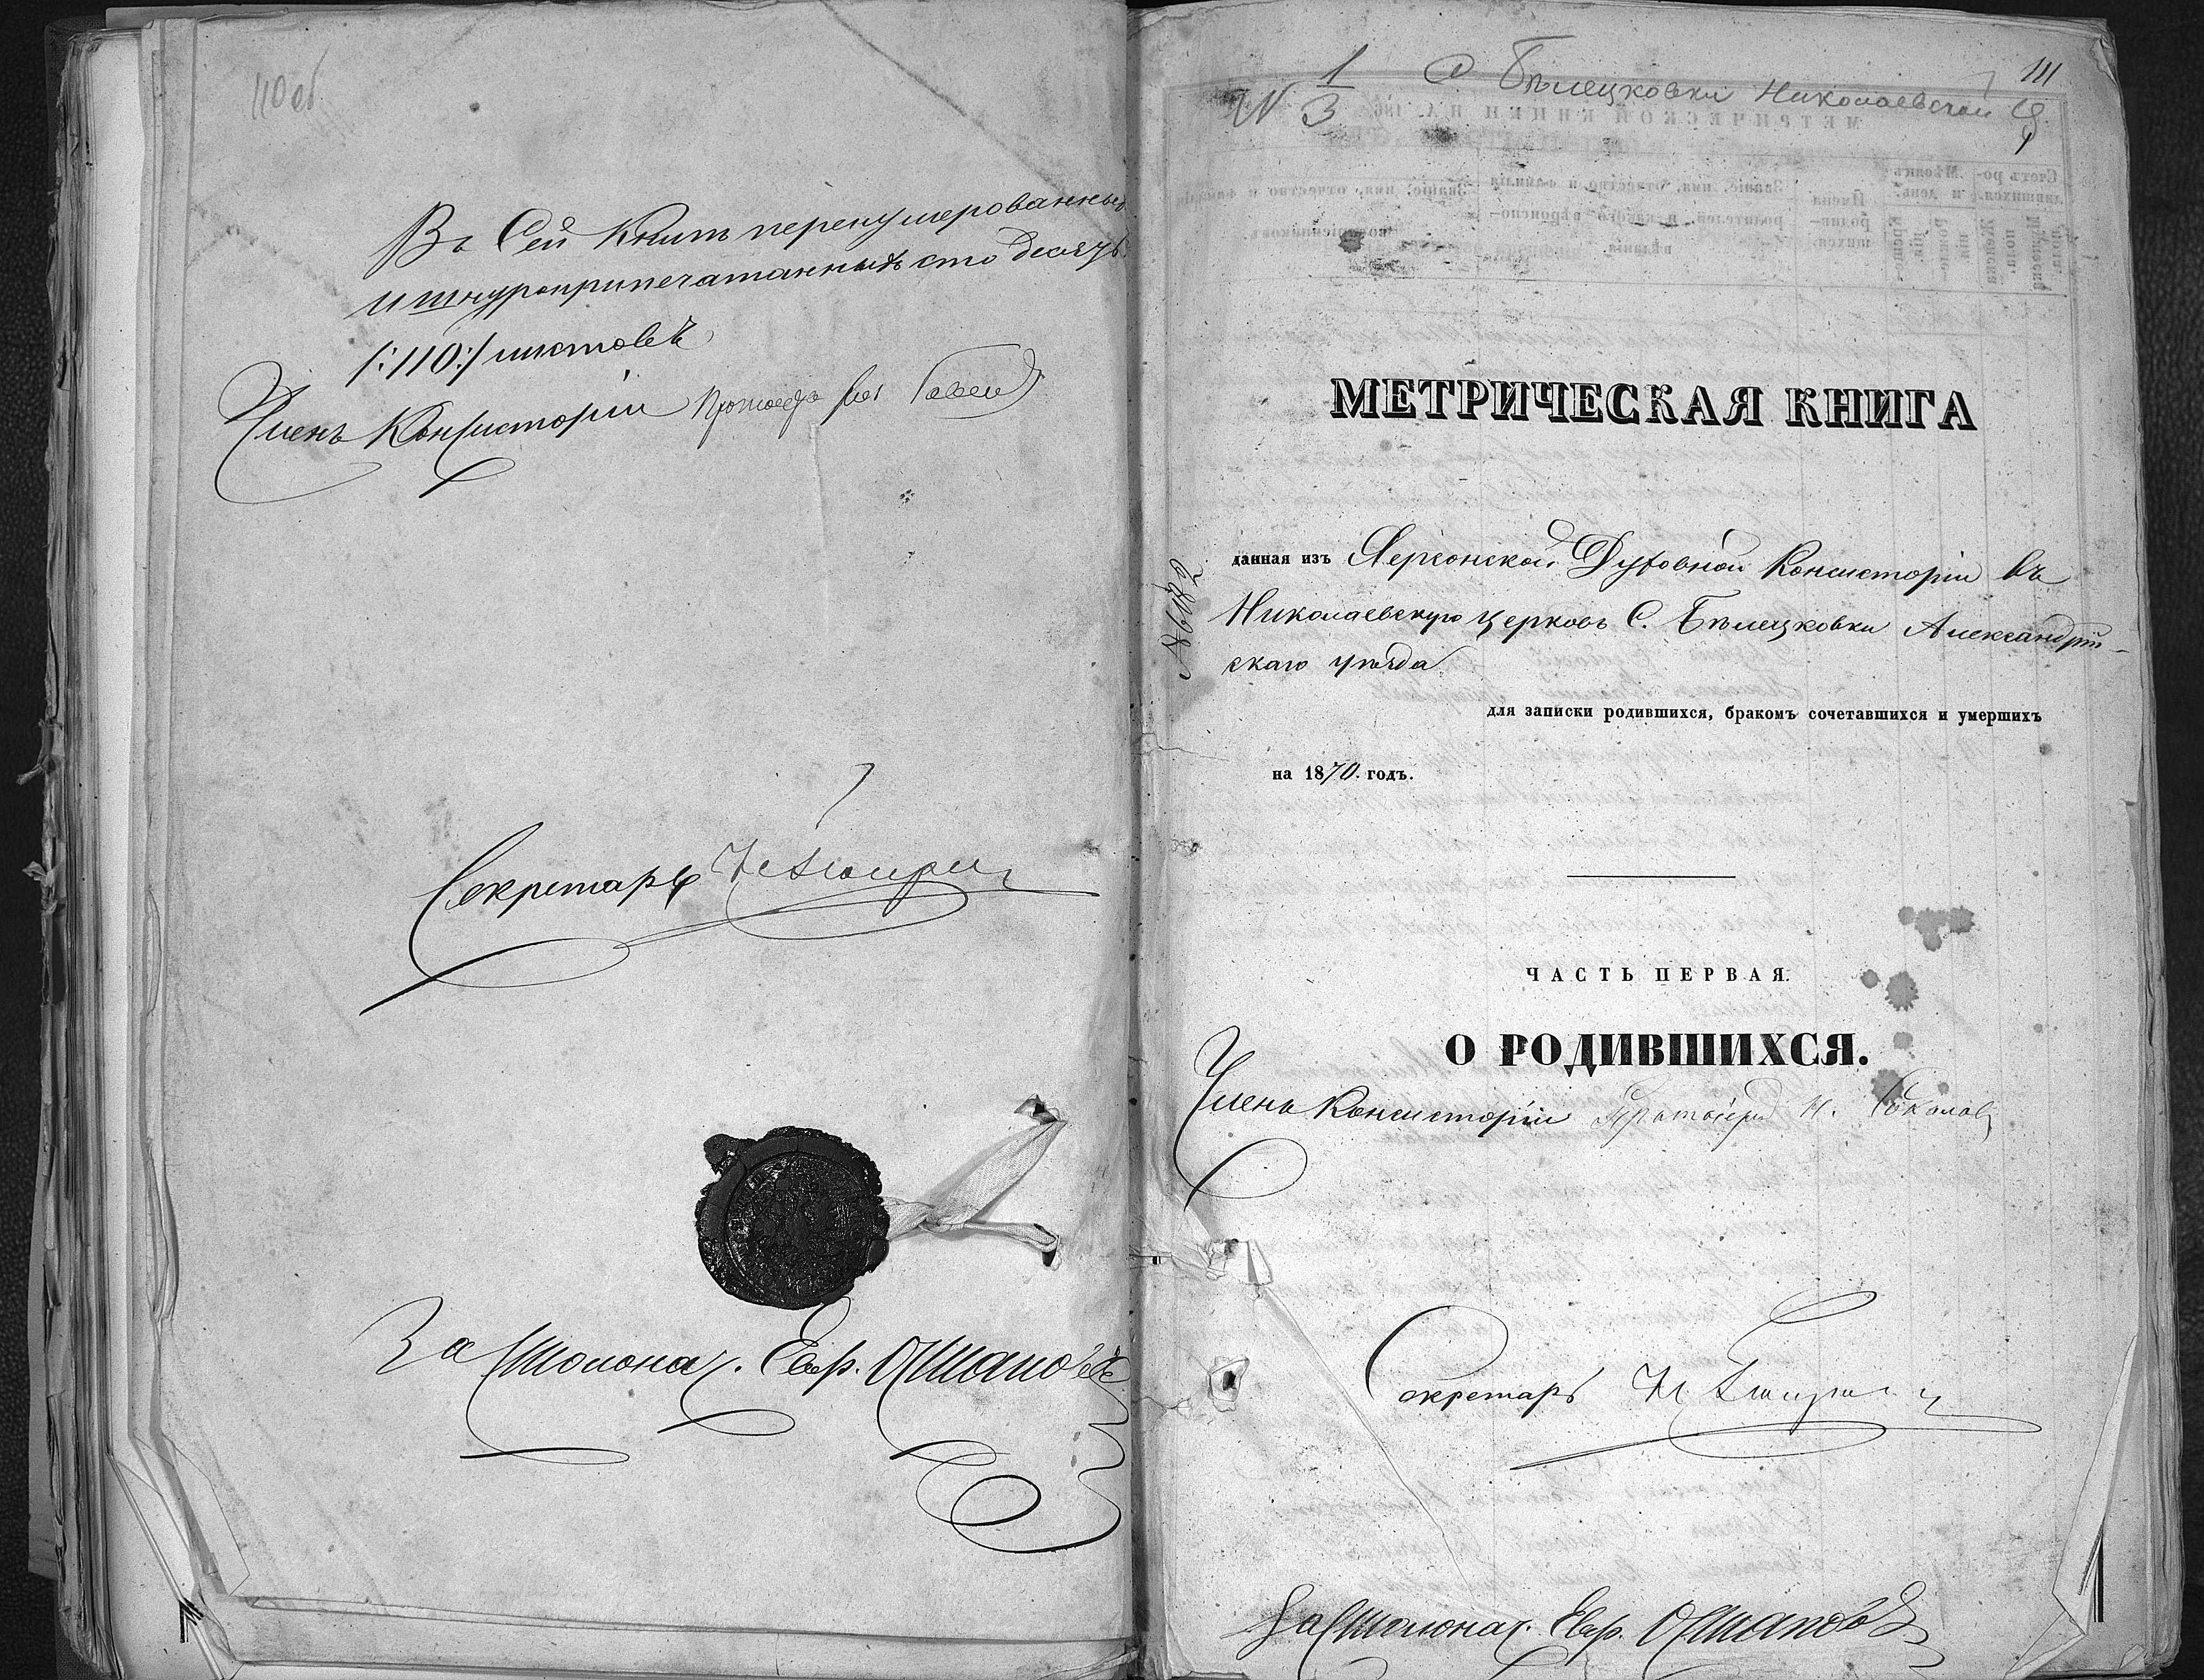 110 об.
Въ Сей Книгѣ перенумерованныхъ
и шнуроприпечатанныхъ сто десять
/:110:/ листовъ
Членъ Консисторіи
Секретарь
За Столона
№ 1/3 С Бѣлецковки Николаевской Ц.
111
МЕТРИЧЕСКАЯ КНИГА
данная изъ Херсонской Духовной Консисторіи въ
Николаевскую Церковь С. Бѣлецковки Александрій-
скаго уѣзда
для записки родившихся, бракомъ сочетавшихся и умершихъ
на 1870. годъ.
ЧАСТЬ ПЕРВАЯ.
О РОДИВШИХСЯ.
Членъ Консисторіи Протоіерей Н. Соколовъ
Секретарь
За Столонач.